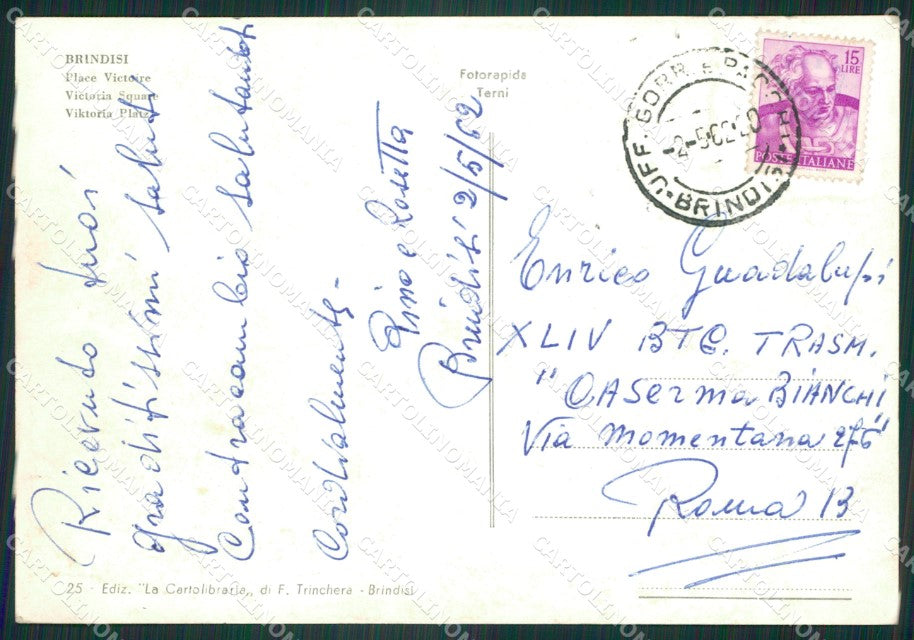 BRINDISI
Place Victoire
Victoria Square
Viktoria Platz
Fotorapida
Terni
15
LIRE
POSTE ITALIANE
UFF. CORR. E PACCHI
-2-5-62
BRINDISI
Ricevuto tuoi
graditissimi saluti
Contraccambio salutandoti
Cordialmente -
Pino e Rosetta
Brindisi 2/5/62
Enrico Guadalupi
XLIV BTG. TRASM.
"CASerma BIANCHI"
Via Momentana 276
Roma 13
25 - Ediz. "La Cartolibraria„ di F. Trinchera - Brindisi
CARTOLINOMANIA